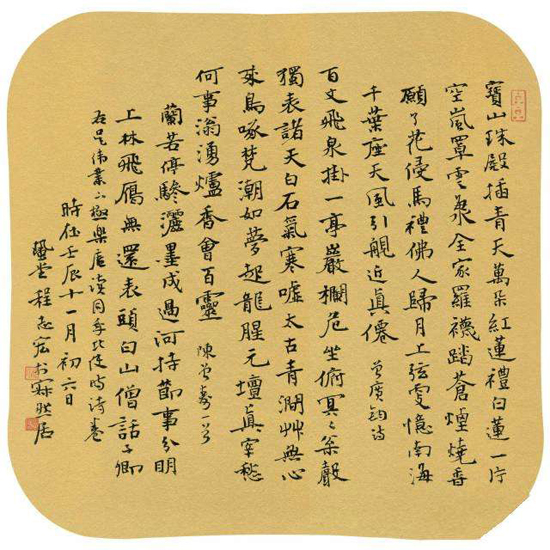 寶山珠殿插青天萬朵紅蓮禮白蓮一片
空嵐罩雲氣全家羅襪踏蒼煙燒香
願了花侵馬禮佛人歸月上弦憶南海
千葉座天風引近真僊 曾廣鈞詩
百丈飛泉掛一亭巖欄危坐俯冥冥聲
獨表諸天白石氣寒噓太古青澗艸無心
來鳥啄梵潮如夢起龍腥元壇真宰愁
何事滃湧爐香會百靈 陳曾壽一首
蘭若停驂灑墨成過河持節事分明
上林飛鴈無還表頭白山僧話子卿
右吴偉業極樂庵讀同年北使時詩卷
時在壬辰十一月初六日
程志宏書寐默居